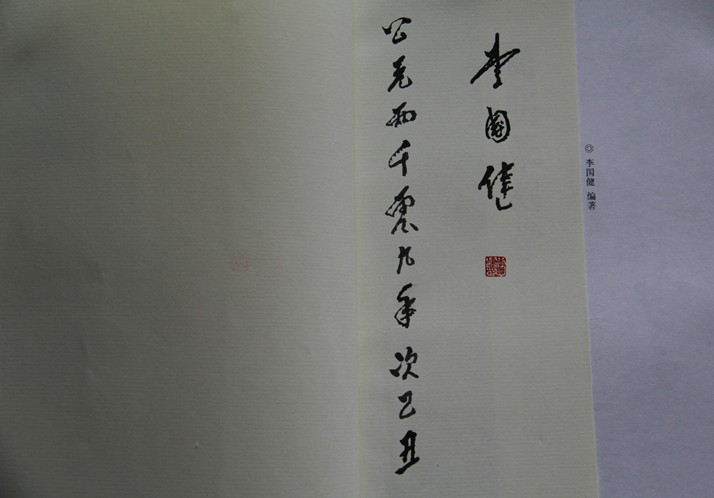 ◎ 李国健 编著
李國健
公元兩千零九年次己丑